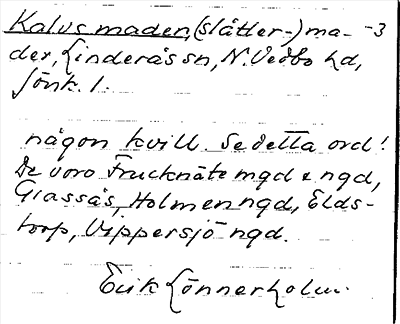 Kalvsmaden, (slåtter-) ma- -3
der, Linderås sn, N. Vedbo hd,
Jönk. l.
någon kvill. Se detta ord!
De voro Frucknäte mgd & ngd,
Grassås, Holmen ngd, Elds-
torp, Vippersjö ngd.
Erik Lönnerholm.